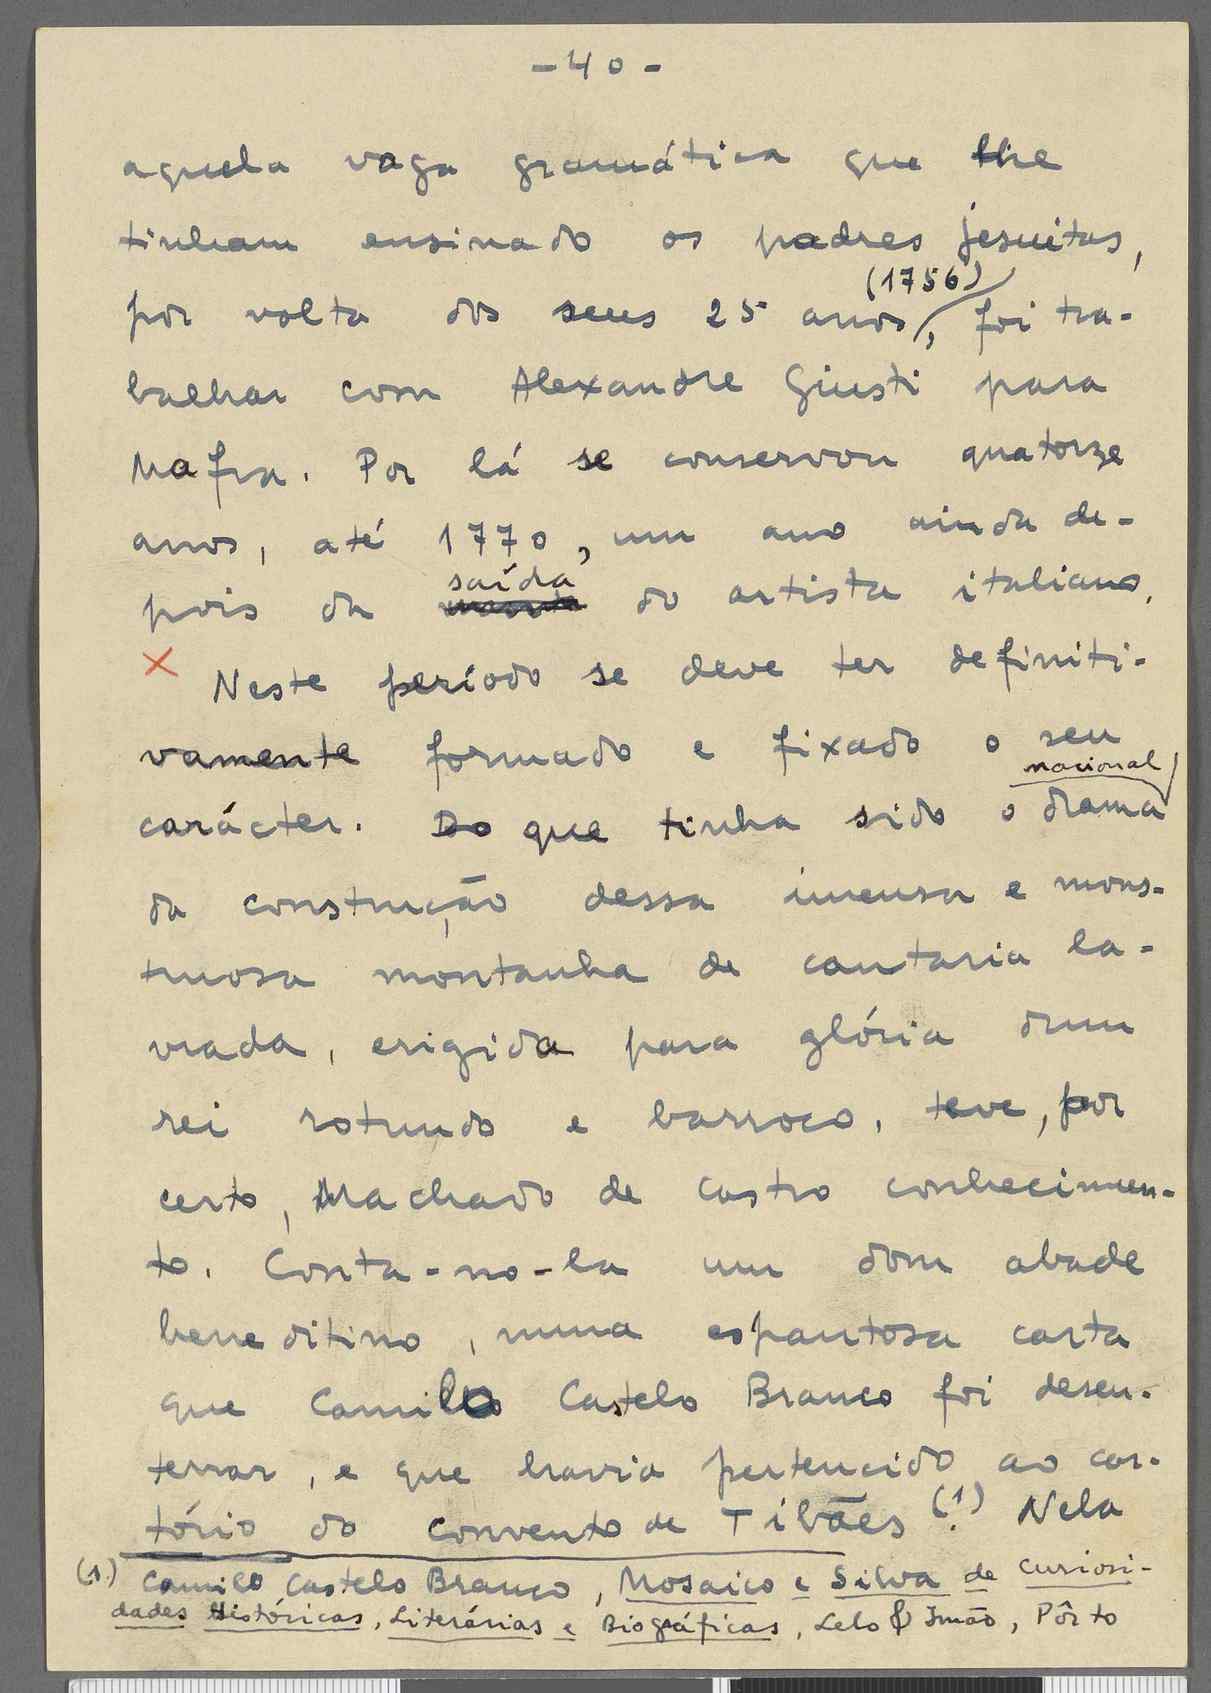 - 40 -
aquela vaga gramática que lhe
tinham ensinado os padres jesuitas,
por volta dos seus 25 anos (1756), foi tra-
balhar com Alexandre Giusti para
Mafra. Por lá se conservou quatorze
anos, até 1770, um ano ainda de-
pois da saída do artista italiano.
× Neste período se deve ter definiti-
vamente formado e fixado o seu
carácter. Do que tinha sido o drama nacional
da construção dessa imensa e mons-
truosa montanha de cantaria la-
vrada, erigida para glória dum
rei rotundo e barroco, teve, por
certo, Machado de Castro conhecimen-
to. Conta-no-la um dom abade
beneditino, numa espantosa carta
que Camilo Castelo Branco foi desen-
terrar, e que havia pertencido ao car-
tório do convento de Tibães (1). Nela
(1) Camilo Castelo Branco, Mosaico e Silva de Curiosi-
dades Históricas, Literárias e Biográficas, Lelo & Irmão, Pôrto